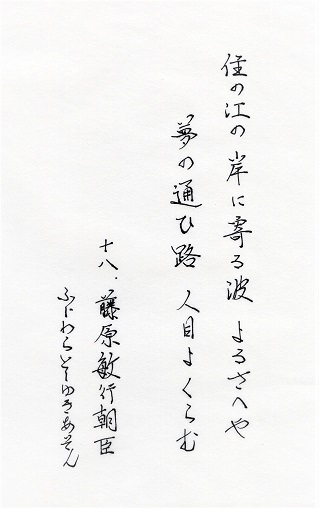 住の江の 岸に寄る波 よるさへや
夢の通ひ路 人目よくらむ
十八．藤原敏行朝臣
ふじわらとしゆきあそん